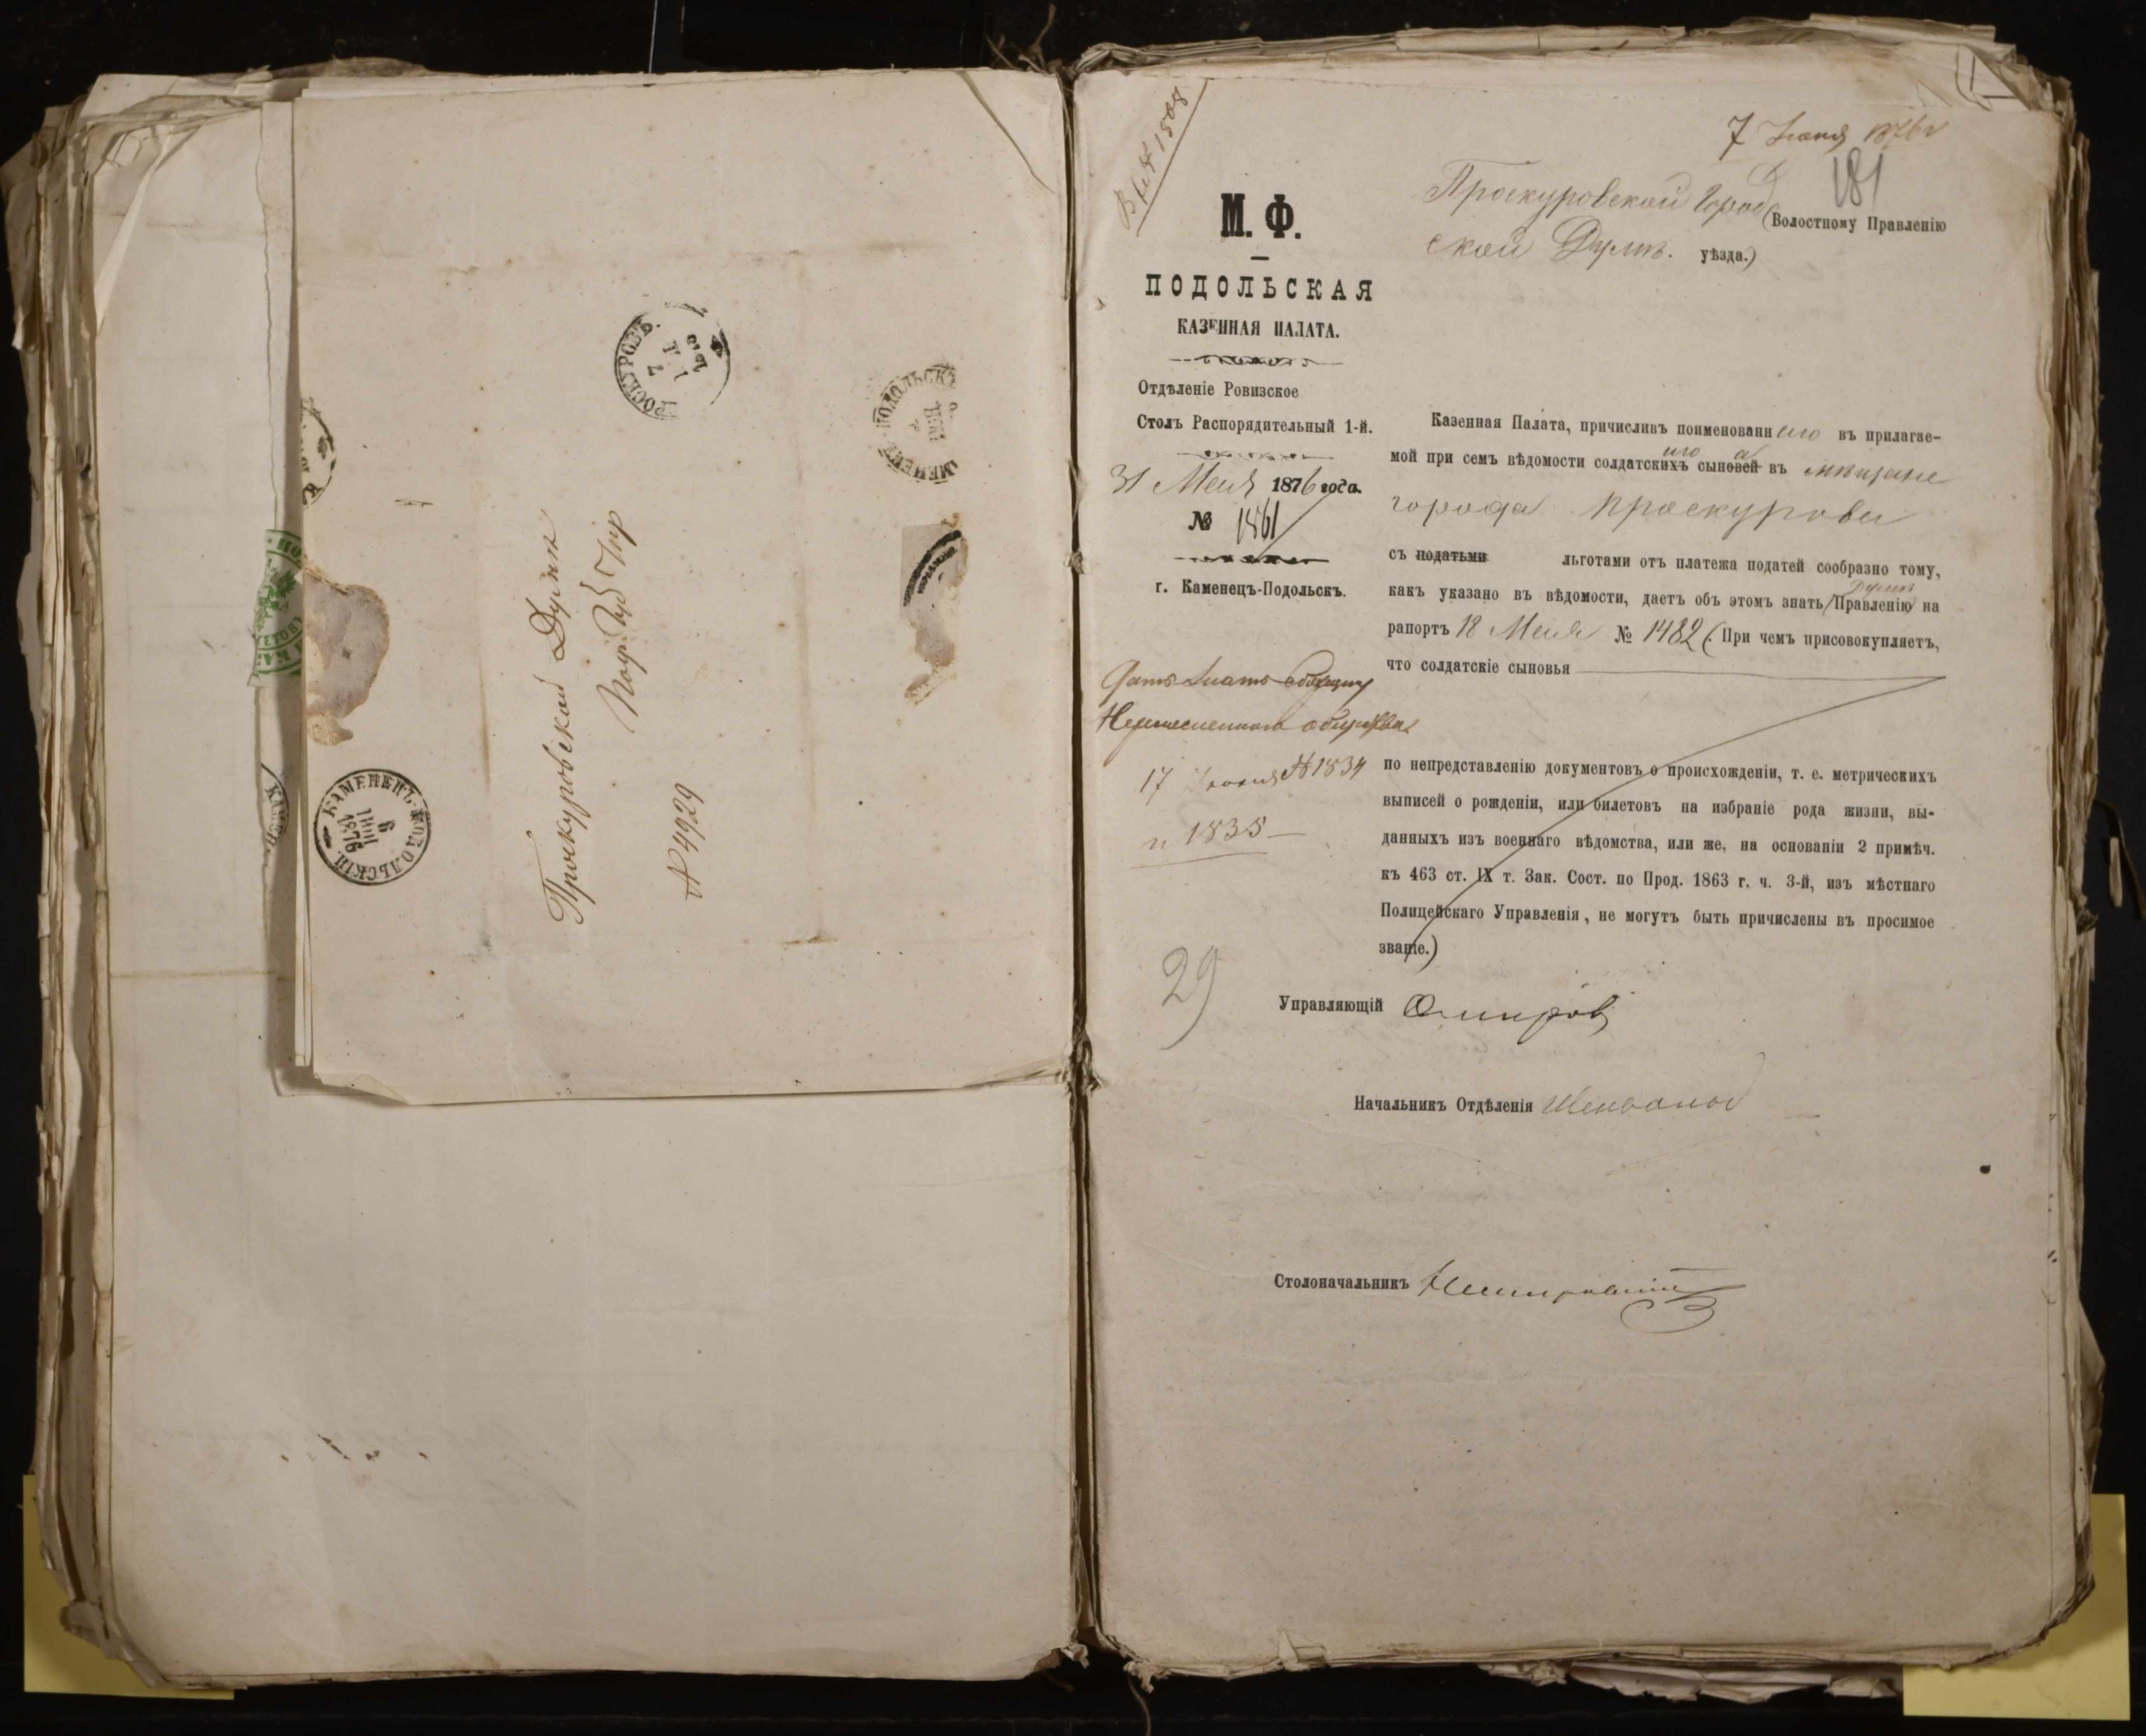 Проскуровской Думѣ
Под. Губ.
№ 4929
ПРОСКУРОВЪ
7
КАМЕНЕЦЪ-ПОДОЛЬСКІЙ
6
ІЮН
1876
В. № 1508
7 Іюня 1876 г
181
М. Ф.
ПОДОЛЬСКАЯ
КАЗЕННАЯ ПАЛАТА.
Отдѣленіе Ровизское
Столъ Распорядительный 1-й.
31 Мая 1876 года.
№ 1861
г. Каменецъ-Подольскъ.
Дать знать
общества
17 Іюня № 1834
и 1835
29
Проскуровской Город (Волостному Правленію
ской Думѣ. уѣзда.)
Казенная Палата, причисливъ поименованнаго въ прилагае-
мой при семъ вѣдомости солдатскихъ сыновей въ мѣщане
города Проскурова
съ податьми льготами отъ платежа податей сообразно тому,
какъ указано въ вѣдомости, даетъ объ этомъ знать Думѣ (Правленію) на
рапортъ 18 Мая № 1482 (При чемъ присовокупляетъ,
что солдатскіе сыновья
по непредставленію документовъ о происхожденіи, т. е. метрическихъ
выписей о рожденіи, или билетовъ на избраніе рода жизни, вы-
данныхъ изъ военнаго вѣдомства, или же, на основаніи 2 примѣч.
къ 463 ст. IX т. Зак. Сост. по Прод. 1863 г. ч. 3-й, изъ мѣстнаго
Полицейскаго Управленія, не могутъ быть причислены въ просимое
званіе.)
Управляющій
Начальникъ Отдѣленія
Столоначальникъ